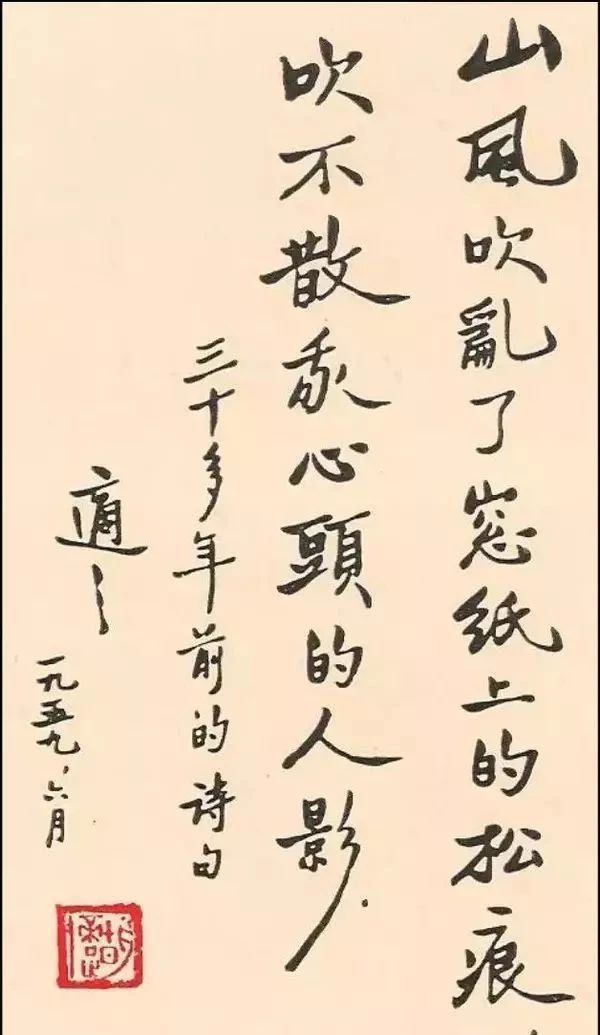 山風吹亂了窓紙上的松痕，
吹不散我心頭的人影．
三十多年前的詩句
適之
一九五九、六月